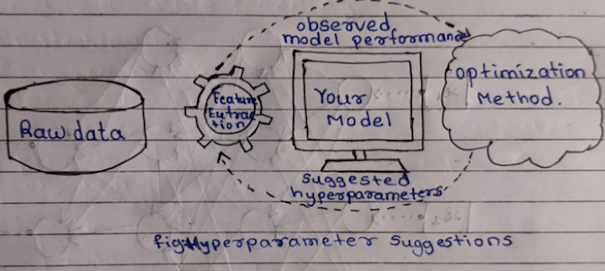 observed
model performance
Raw data
Feature
Extrac
tion
Your
Model
optimization
Method.
suggested
hyperparameters
fig:Hyperparameter Suggestions